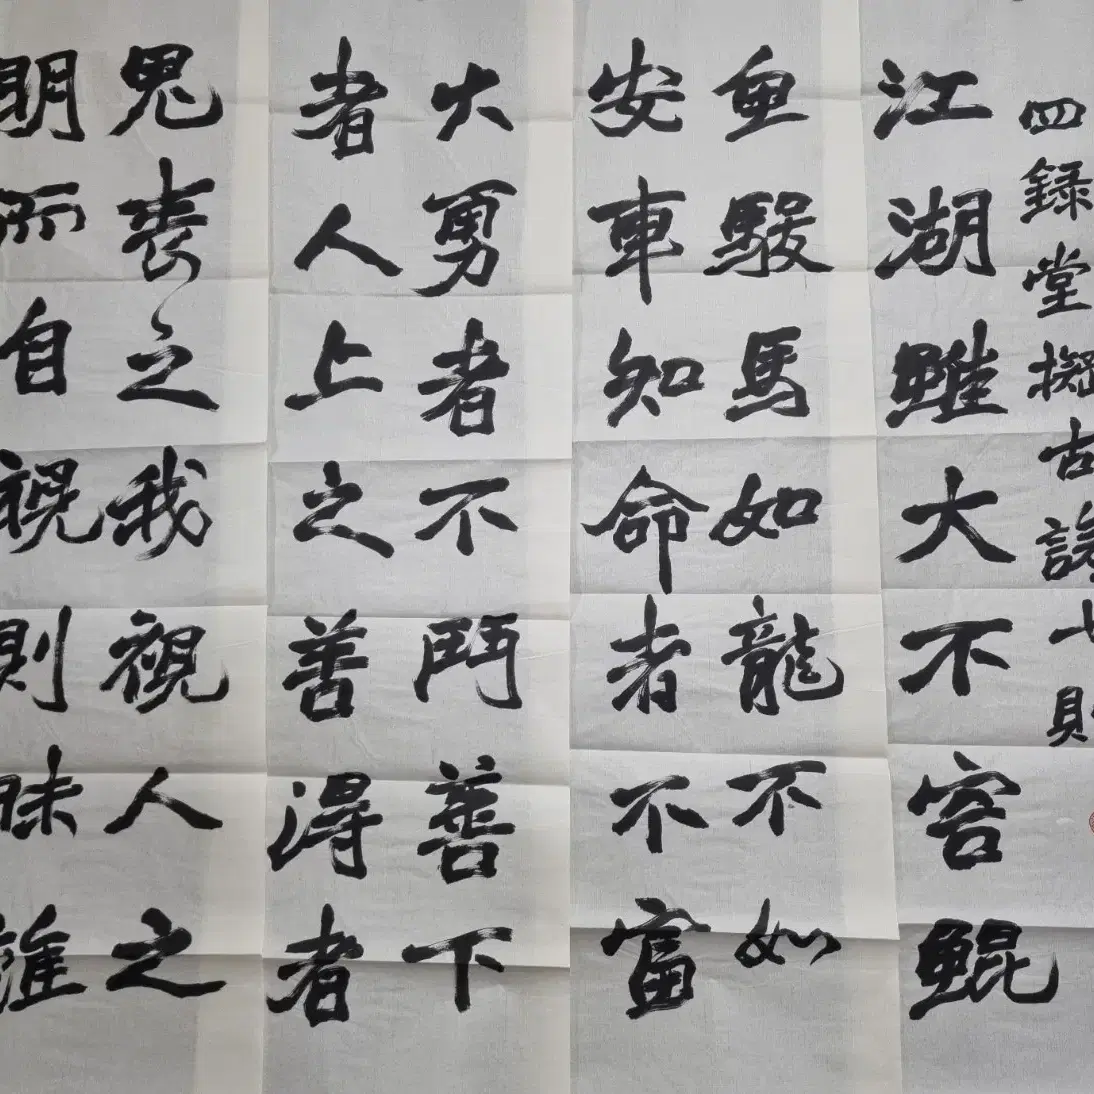 四録堂擬古諺七則
江湖雖大不容鯤
魚駿馬如龍不如
安車知命者不富
大勇者不鬥善下
者人上之善得者
鬼喪之我視人之
明而自視則昧誰